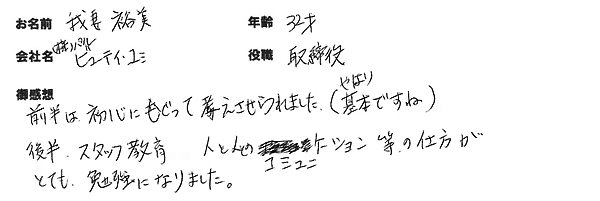 お名前 我妻 裕美 年齢 32才
会社名 ㈱ ビューティ・ユミ 役職 取締役
御感想
前半は初心にもどって考えさせられました。(やはり基本ですね)
後半、スタッフ教育 人と人とのコミュニケーション等の仕方が
とても、勉強になりました。